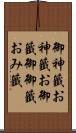 御神籤お
神籤お御
籤御御籤
おみ籤